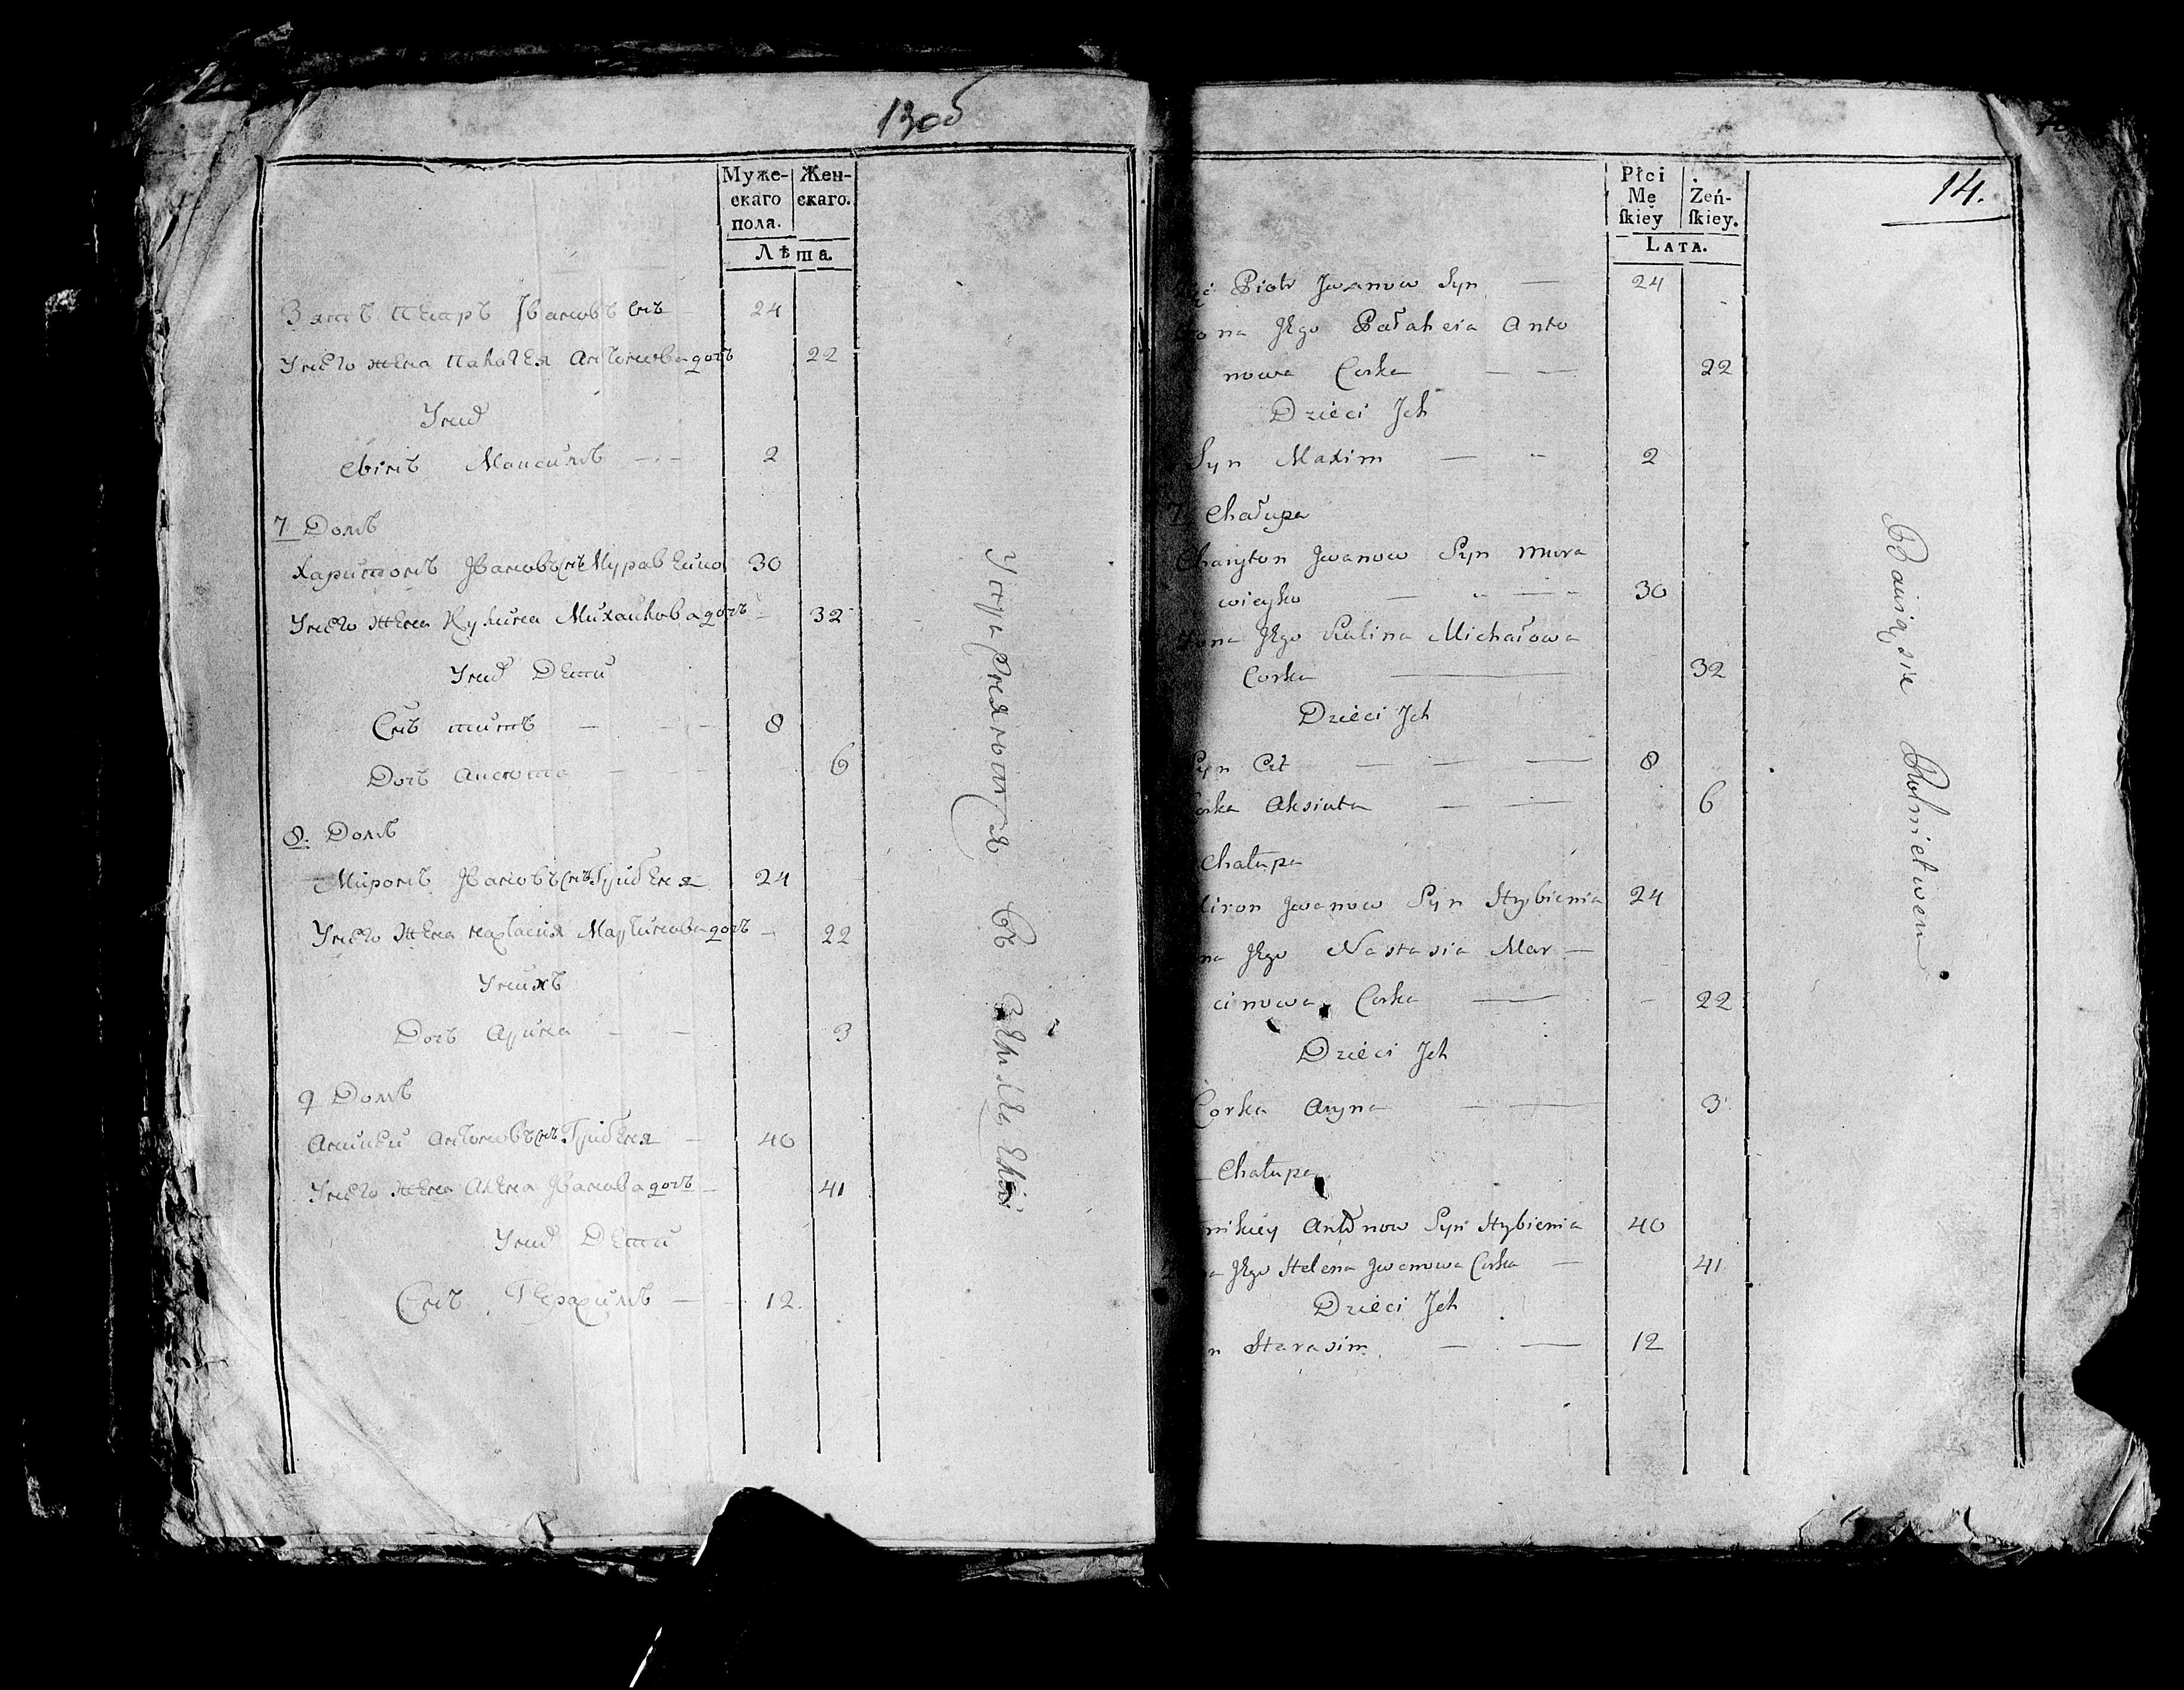 13об
Муже-
скаго
пола.
Жен-
скаго.
Лѣта.
Зятъ Петръ Јвановъ Снъ 24
Унего жена Палагея Антонова дочъ 22
Уних
Сынъ Максимъ 2
7 Домъ
Харитонъ Јвановъ Снъ Муравейко 30
Унего жена Кулина Михайлова дочъ 32
Уних Дети
Снъ титъ 8
Дочъ Аксюта 6
8. Домъ
Миронъ Јвановъ Снъ Грибеня 24
Унего жена настасия Мартинова дочъ 22
Унихъ
Дочъ Арина 3
9 Домъ
Аникей Антоновъ Снъ Грибеня 40
Унего жена Алена Јванова дочъ 41
Уних Дети
Снъ Герасимъ 12.
Упражняютца въ земледелии
14.
Płci
Mę
ſkiey
Żeń-
ſkiey.
LATA.
Piotr Jwanow Syn 24
Jego Pałaheia Anto
nowa Corka 22
Dzieci Jch
Syn Maxim 2
7 Chałupa
Charyton Jwanow Syn Mura
wieyko 30
Żona Jego Kulina Michałowa
Corka 32
Dzieci Jch
Syn Cit 8
Corka Aksiuta 6
Chałupa
Miron Jwanow Syn Hrybienia 24
Jego Nastasia Mar
cinowa Corka 22
Dzieci Jch
Corka Aryna 3
Chałupa
nikiey Antonow Syn Hrybienia 40
Jego Helena Jwanowa Corka 41
Dzieci Jch
Harasim 12
Bawią się Rolnictwem